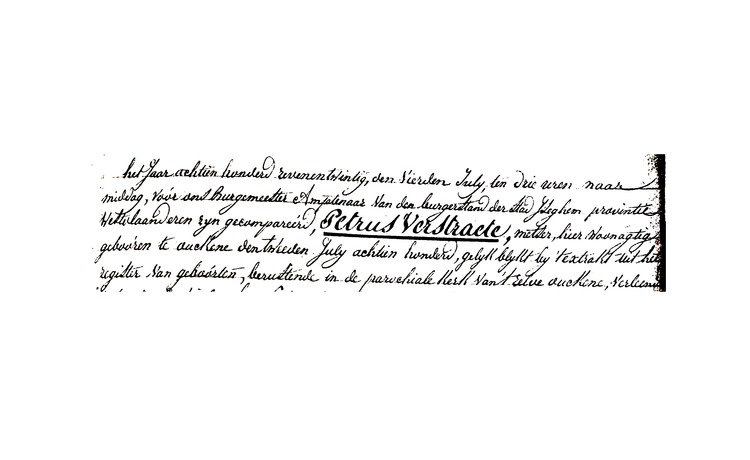 het Jaar achtien honderd zevenentwintig, den Vierden July, ten drie uren naar
middag, vóór ons Burgemeester Amptenaar van den burgerstand der stad Iseghem provintie
Westvlaanderen zyn gecompareird, Petrus Verstraete, metser, hier woonagtig
gebooren te ouckene den tweeden July achtien honderd, gelyk blykt by 't extrakt uit het
register van geboorten, berustende in de parochiale Kerk van t zelve ouckene, verleend